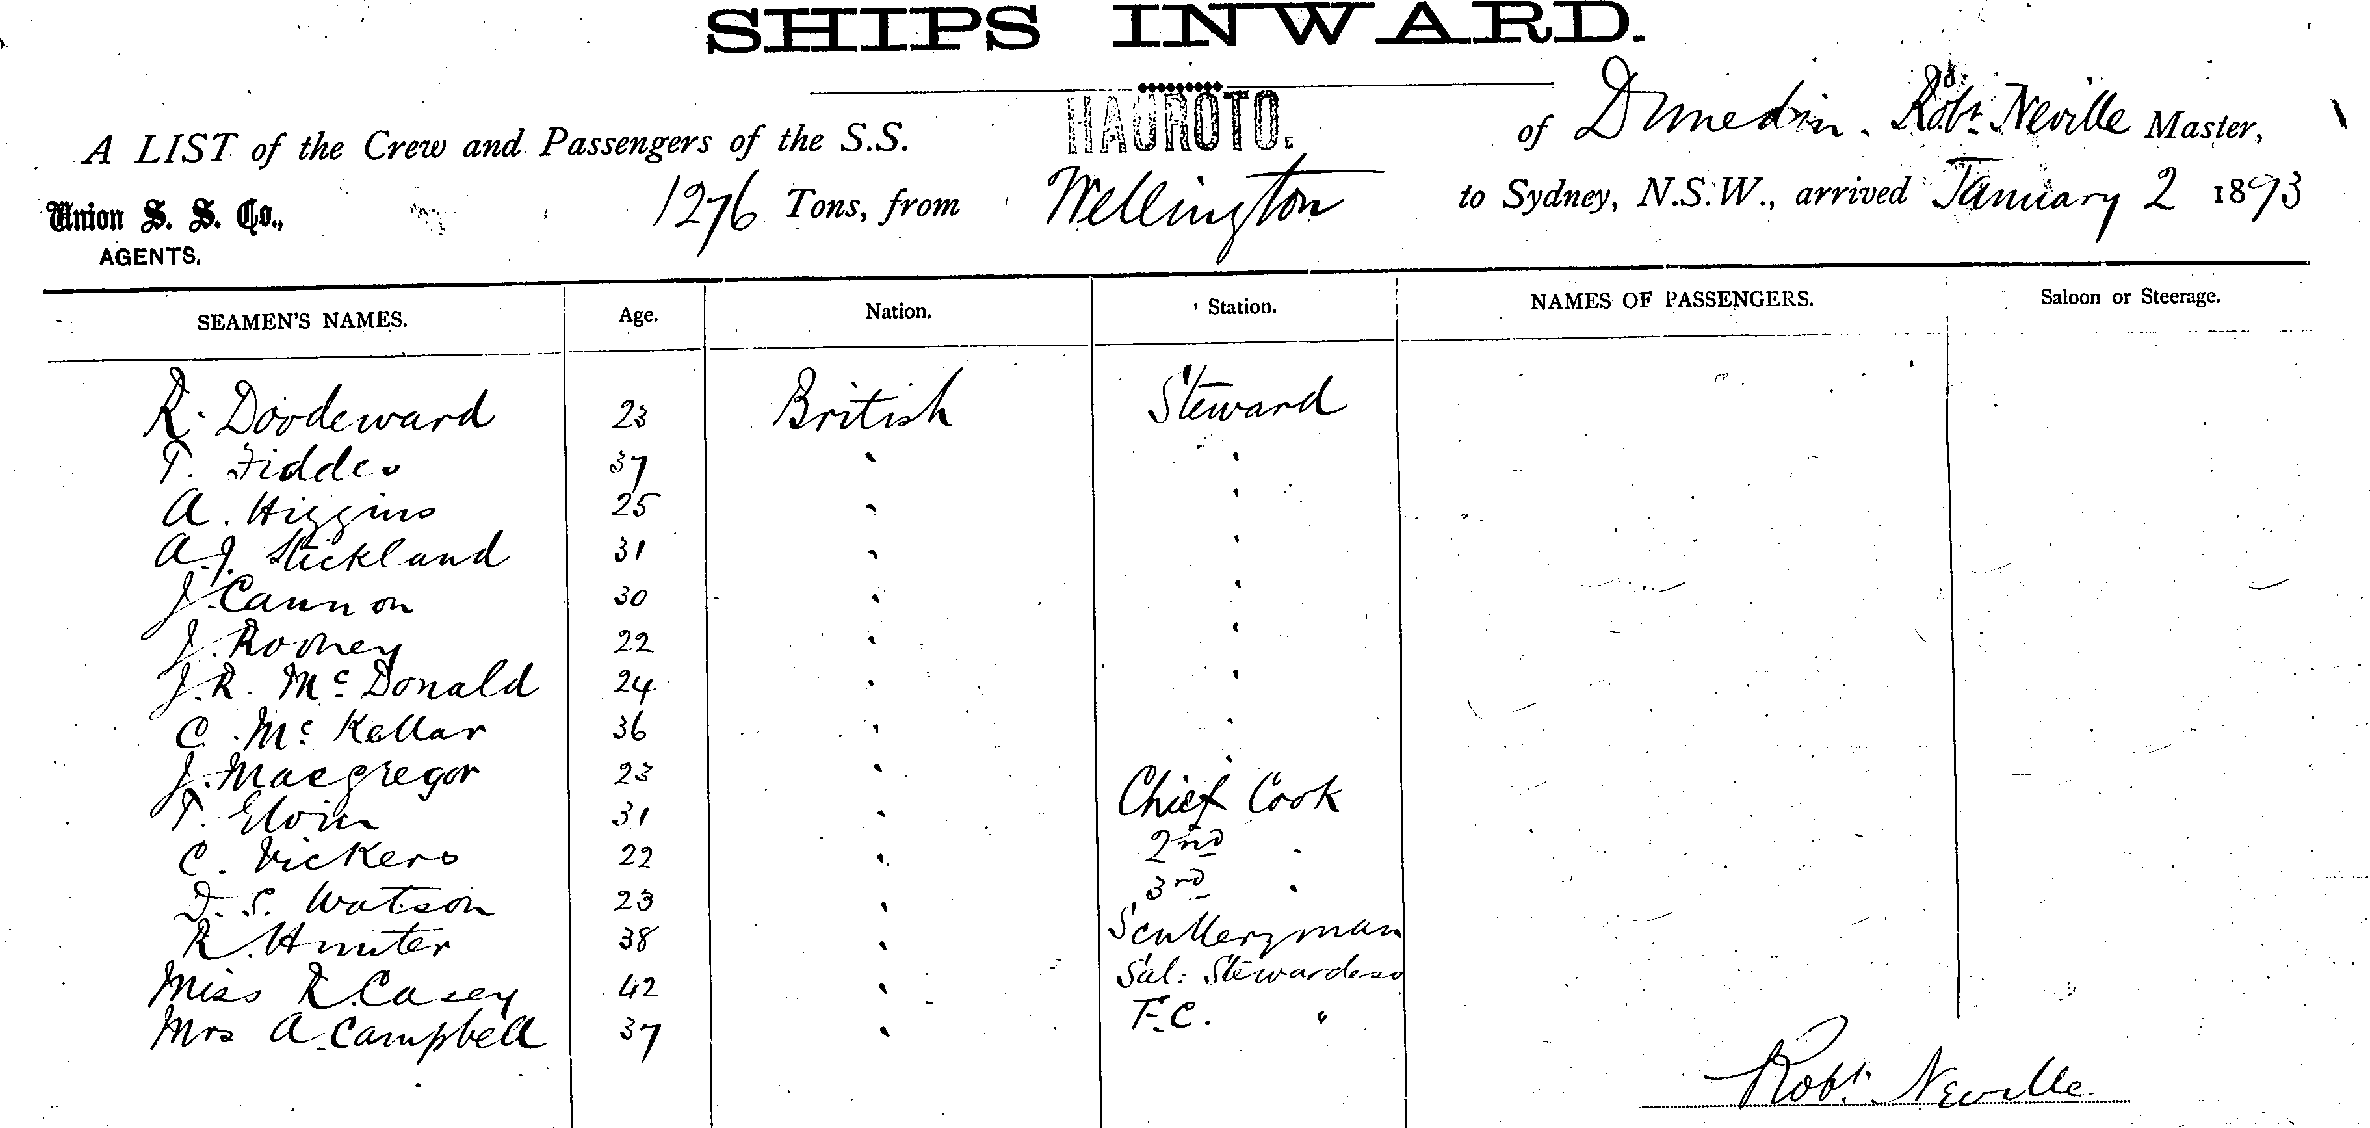 SHIPS INWARD.
A LIST of the Crew and Passengers of the S.S. HAUROTO. of Dunedin. Robt. Neville Master,
Union S. S. Co., 1276 Tons, from Wellington to Sydney, N.S.W., arrived January 2 1893
AGENTS.
SEAMEN'S NAMES. Age. Nation. Station. NAMES OF PASSENGERS. Saloon or Steerage.
R. Doodeward 23 British Steward
T. Fiddes 37 " "
A. Higgins 25 " "
A. J. Stickland 31 " "
J. Cannon 30 " "
J. Rooney 22 " "
J. R. McDonald 24 " "
C. McKellar 36 " "
J. Macgregor 23 " "
T. Elvin 31 " Chief Cook
C. Vickers 22 " 2nd "
D. S. Watson 23 " 3rd "
R. Hunter 38 " Sculleryman
Miss R. Casey 42 " Sal: Stewardess
Mrs A. Campbell 37 " F.C. "
Robt. Neville.